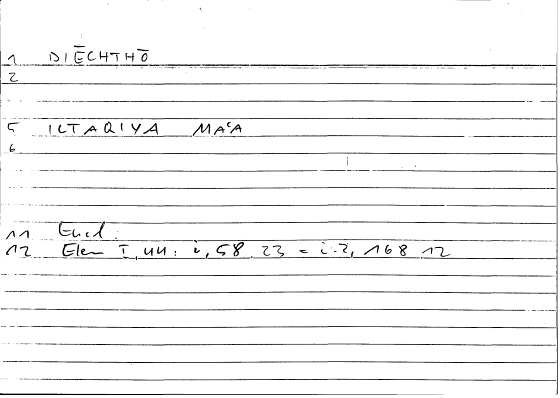 1 DIĒCHTHŌ
2
5 ILTAQIYA MAʿA
6
11 Eucl.
12 Elem I, 44: i, 58 23 = i.2, 168 12